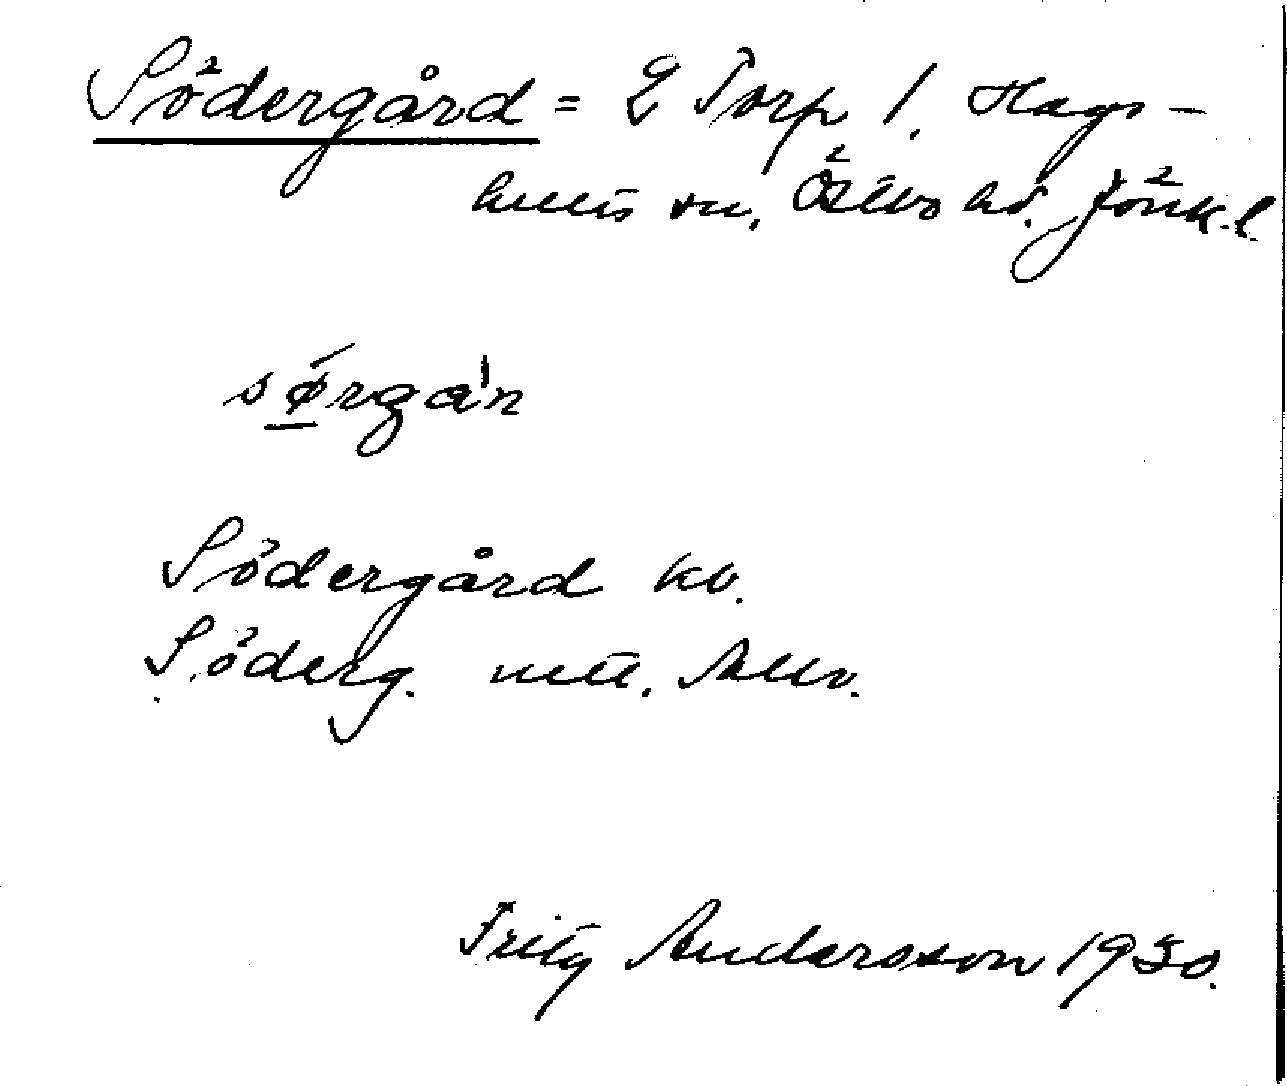 Södergård = 2 Torp 1. Hags-
hults sn, Östbo hd. Jönk. l.
sørgán
Södergård kv.
Söderg.
Fritz Andersson 1930.